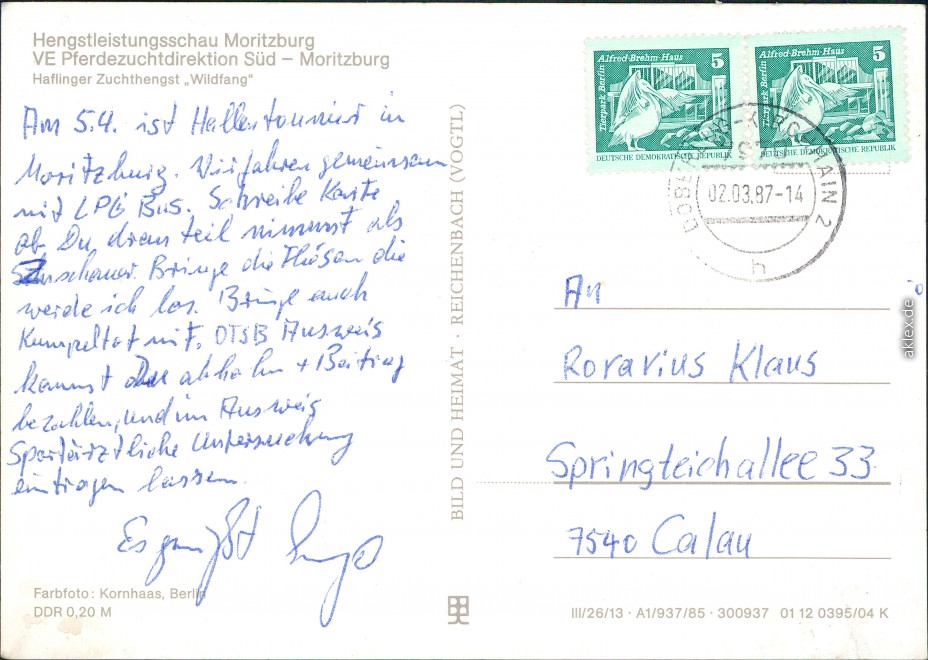 Hengstleistungsschau Moritzburg
VE Pferdezuchtdirektion Süd – Moritzburg
Haflinger Zuchthengst „Wildfang“
Am 5.4. ist Hallentournier in
Moritzburg. Wir fahren gemeinsam
mit LPG Bus. Schreibe Karte
ab Du dran teil nimmst als
Zuschauer. Bringe die Hosen die
werde ich los. Bringe auch
mit. DTSB Ausweis
kannst Du abholn + Beitrag
bezahlen, und im Ausweis
Sportärztliche Untersuchung
eintragen lassen.
Es grüßt
Farbfoto: Kornhaas, Berlin
DDR 0,20 M
BILD UND HEIMAT · REICHENBACH (VOGTL)
Tierpark Berlin Alfred-Brehm-Haus 5
DEUTSCHE DEMOKRATISCHE REPUBLIK
Tierpark Berlin Alfred-Brehm-Haus 5
DEUTSCHE DEMOKRATISCHE REPUBLIK
DOBERLUG-KIRCHHAIN 2
7970
02.03.87-14
h
An
Rorarius Klaus
Springteichallee 33
7540 Calau
III/26/13 · A1/937/85 · 300937 01 12 0395/04 K
aklex.de